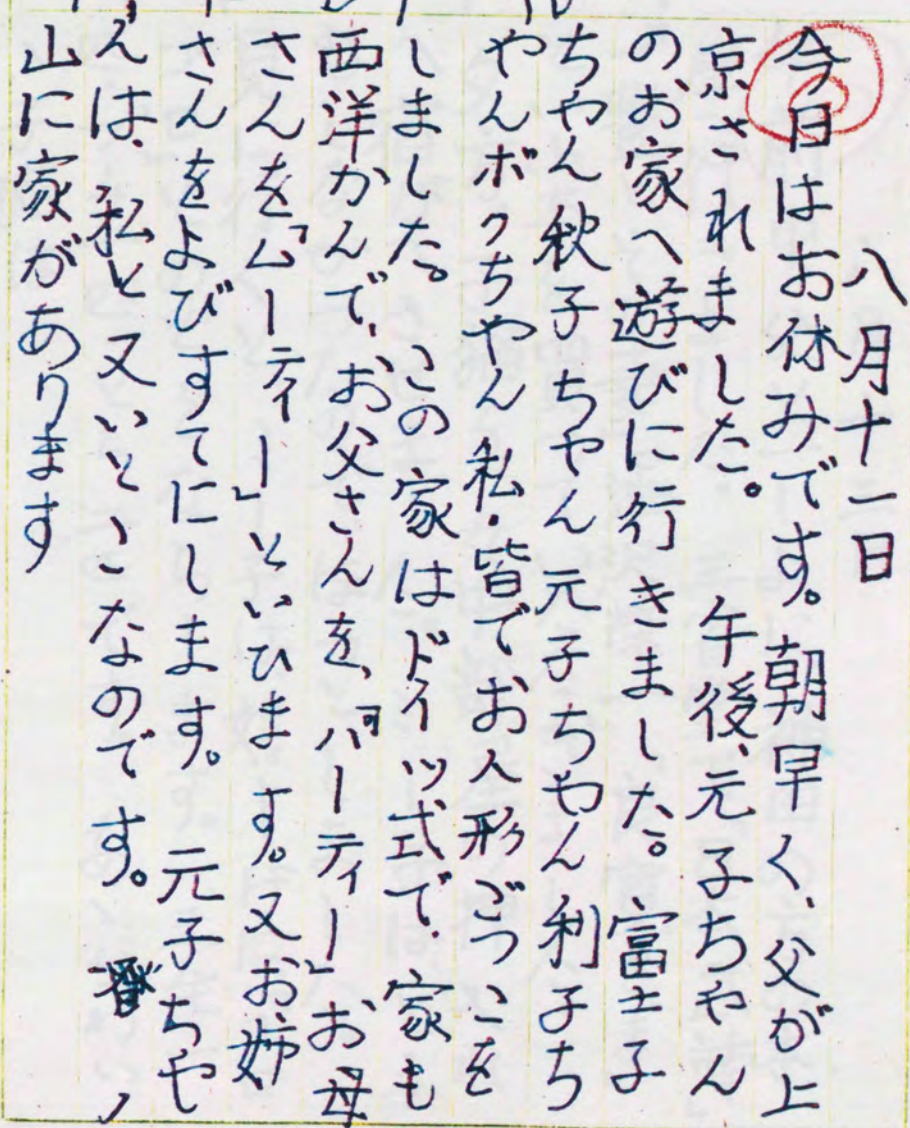 八月十一日
今日はお休みです。朝早く、父が上
京されました。 午後、元子ちゃん
のお家へ遊びに行きました。富士子
ちゃん秋子ちゃん元子ちゃん利子ち
ゃんボクちゃん私・皆でお人形ごっこを
しました。この家はドイツ式で、家も
西洋かんで、お父さんを、「パーティー」お母
さんを「ムーティー」といひます。又お姉
さんをよびすてにします。 元子ちゃ
んは、私と又いとこなのです。
山に家があります